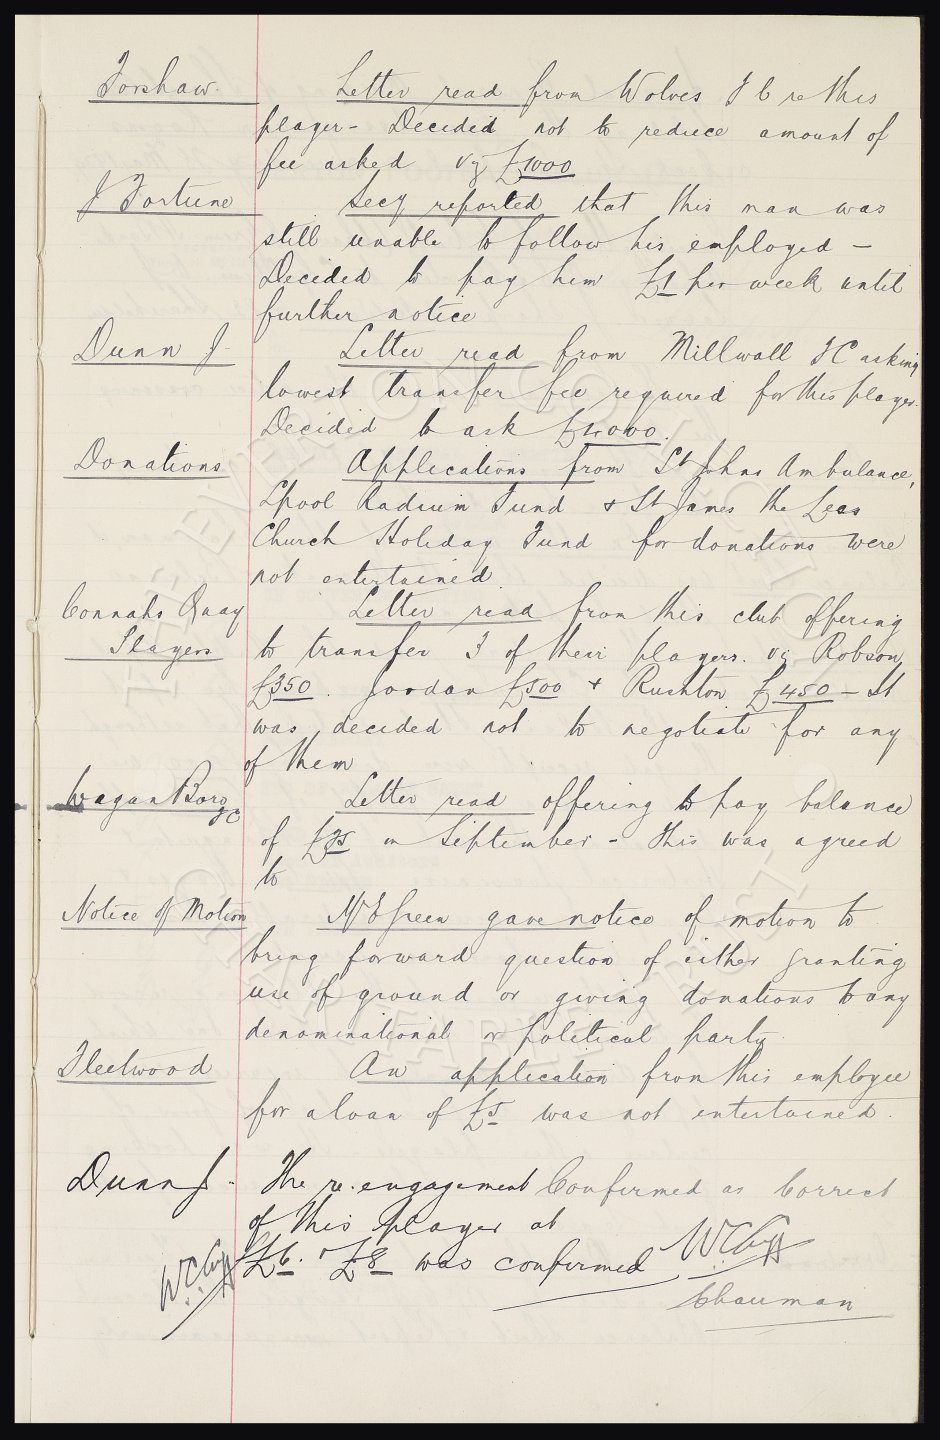 Forshaw.
Letter read from Wolves F C re this
player - Decided not to reduce amount of
fee asked viz £1000
J Fortune
Secy reported that this man was
still unable to follow his employed -
Decided to pay him £1 per week until
further notice
Dunn J.
Letter read from Millwall F C asking
lowest transfer fee required for this player.
Decided to ask £4000.
Donations
Applications from St Johns Ambulance,
Lpool Radium Fund & St James the Less
Church Holiday Fund for donations were
not entertained
Connahs Quay
Players
Letter read from this club offering
to transfer 3 of their players. viz Robson
£350. Jordan £500 & Rushton £450 - It
was decided not to negotiate for any
of them
Wigan Boro
FC
Letter read offering to pay balance
of £75 in September - This was agreed
to
Notice of Motion
Mr E Green gave notice of motion to
bring forward question of either granting
use of ground or giving donations to any
denominational or political party.
Fleetwood
An application from this employee
for a loan of £5 was not entertained.
Dunn J.
The re-engagement
of this player at
£6. £8 was confirmed
Confirmed as Correct
W C Cuff
W C Cuff
Chairman
EVERTON COLLECTION